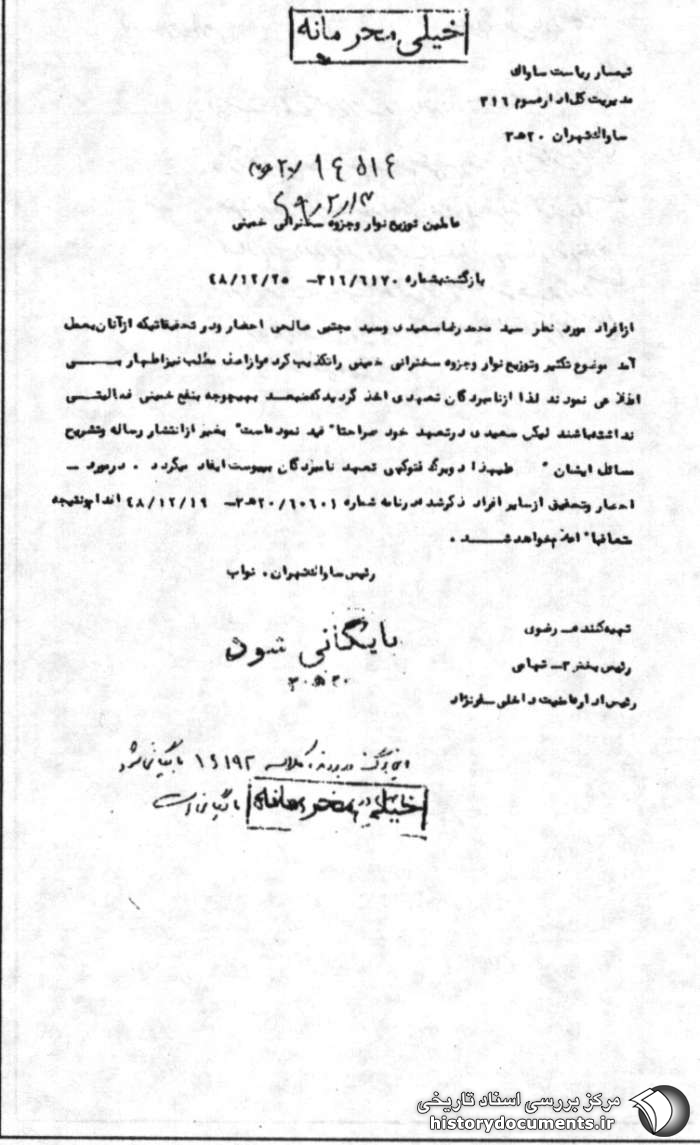 خیلی محرمانه
تیمسار ریاست ساواک
مدیریت کل اداره سوم ۳۱۶
ساواک تهران ۲۰ ه‍ ۳
عاملین توزیع نوار و جزوه سخنرانی خمینی
بازگشت بشماره ۳۱۶/۶۱۷۰ – ۴۸/۱۲/۲۵
از افراد مورد نظر سید محمد رضا سعیدی و سید مجتبی صالحی احضار و در تحقیقاتیکه از آنان بعمل
آمد موضوع تکثیر و توزیع نوار و جزوه سخنرانی خمینی را تکذیب کرده و از اصل مطلب نیز اظهار بی
اطلاعی نمودند لذا از نامبردگان تعهدی اخذ گردید که منبعد بهیچوجه بنفع خمینی فعالیتی
نداشته باشند لیکن سعیدی در تعهد خود صراحتا" قید نموده است" بغیر از انتشار رساله و تشریح
مسائل ایشان " علیهذا دو برگ فتوکپی تعهد نامبردگان بپیوست ایفاد میگردد . در مورد –
احضار و تحقیق از سایر افراد ذکر شده در نامه شماره ۲۰/۶۰۶۰۱ ه‍ ۳ – ۴۸/۱۲/۱۹ اقدام و نتیجه
متعاقبا" اعلام خواهد شد .
رئیس ساواک تهران . نواب
تهیه کننده – رضوی
رئیس بخش ۳ – تهامی
رئیس اداره امنیت داخلی صفرنژاد
بایگانی شود
۲۰ ه‍ ۳
این برگ در پرونده کلاسه ۱۶۱۹۲ بایگانی شود
خیلی محرمانه
مرکز بررسی اسناد تاریخی
historydocuments.ir